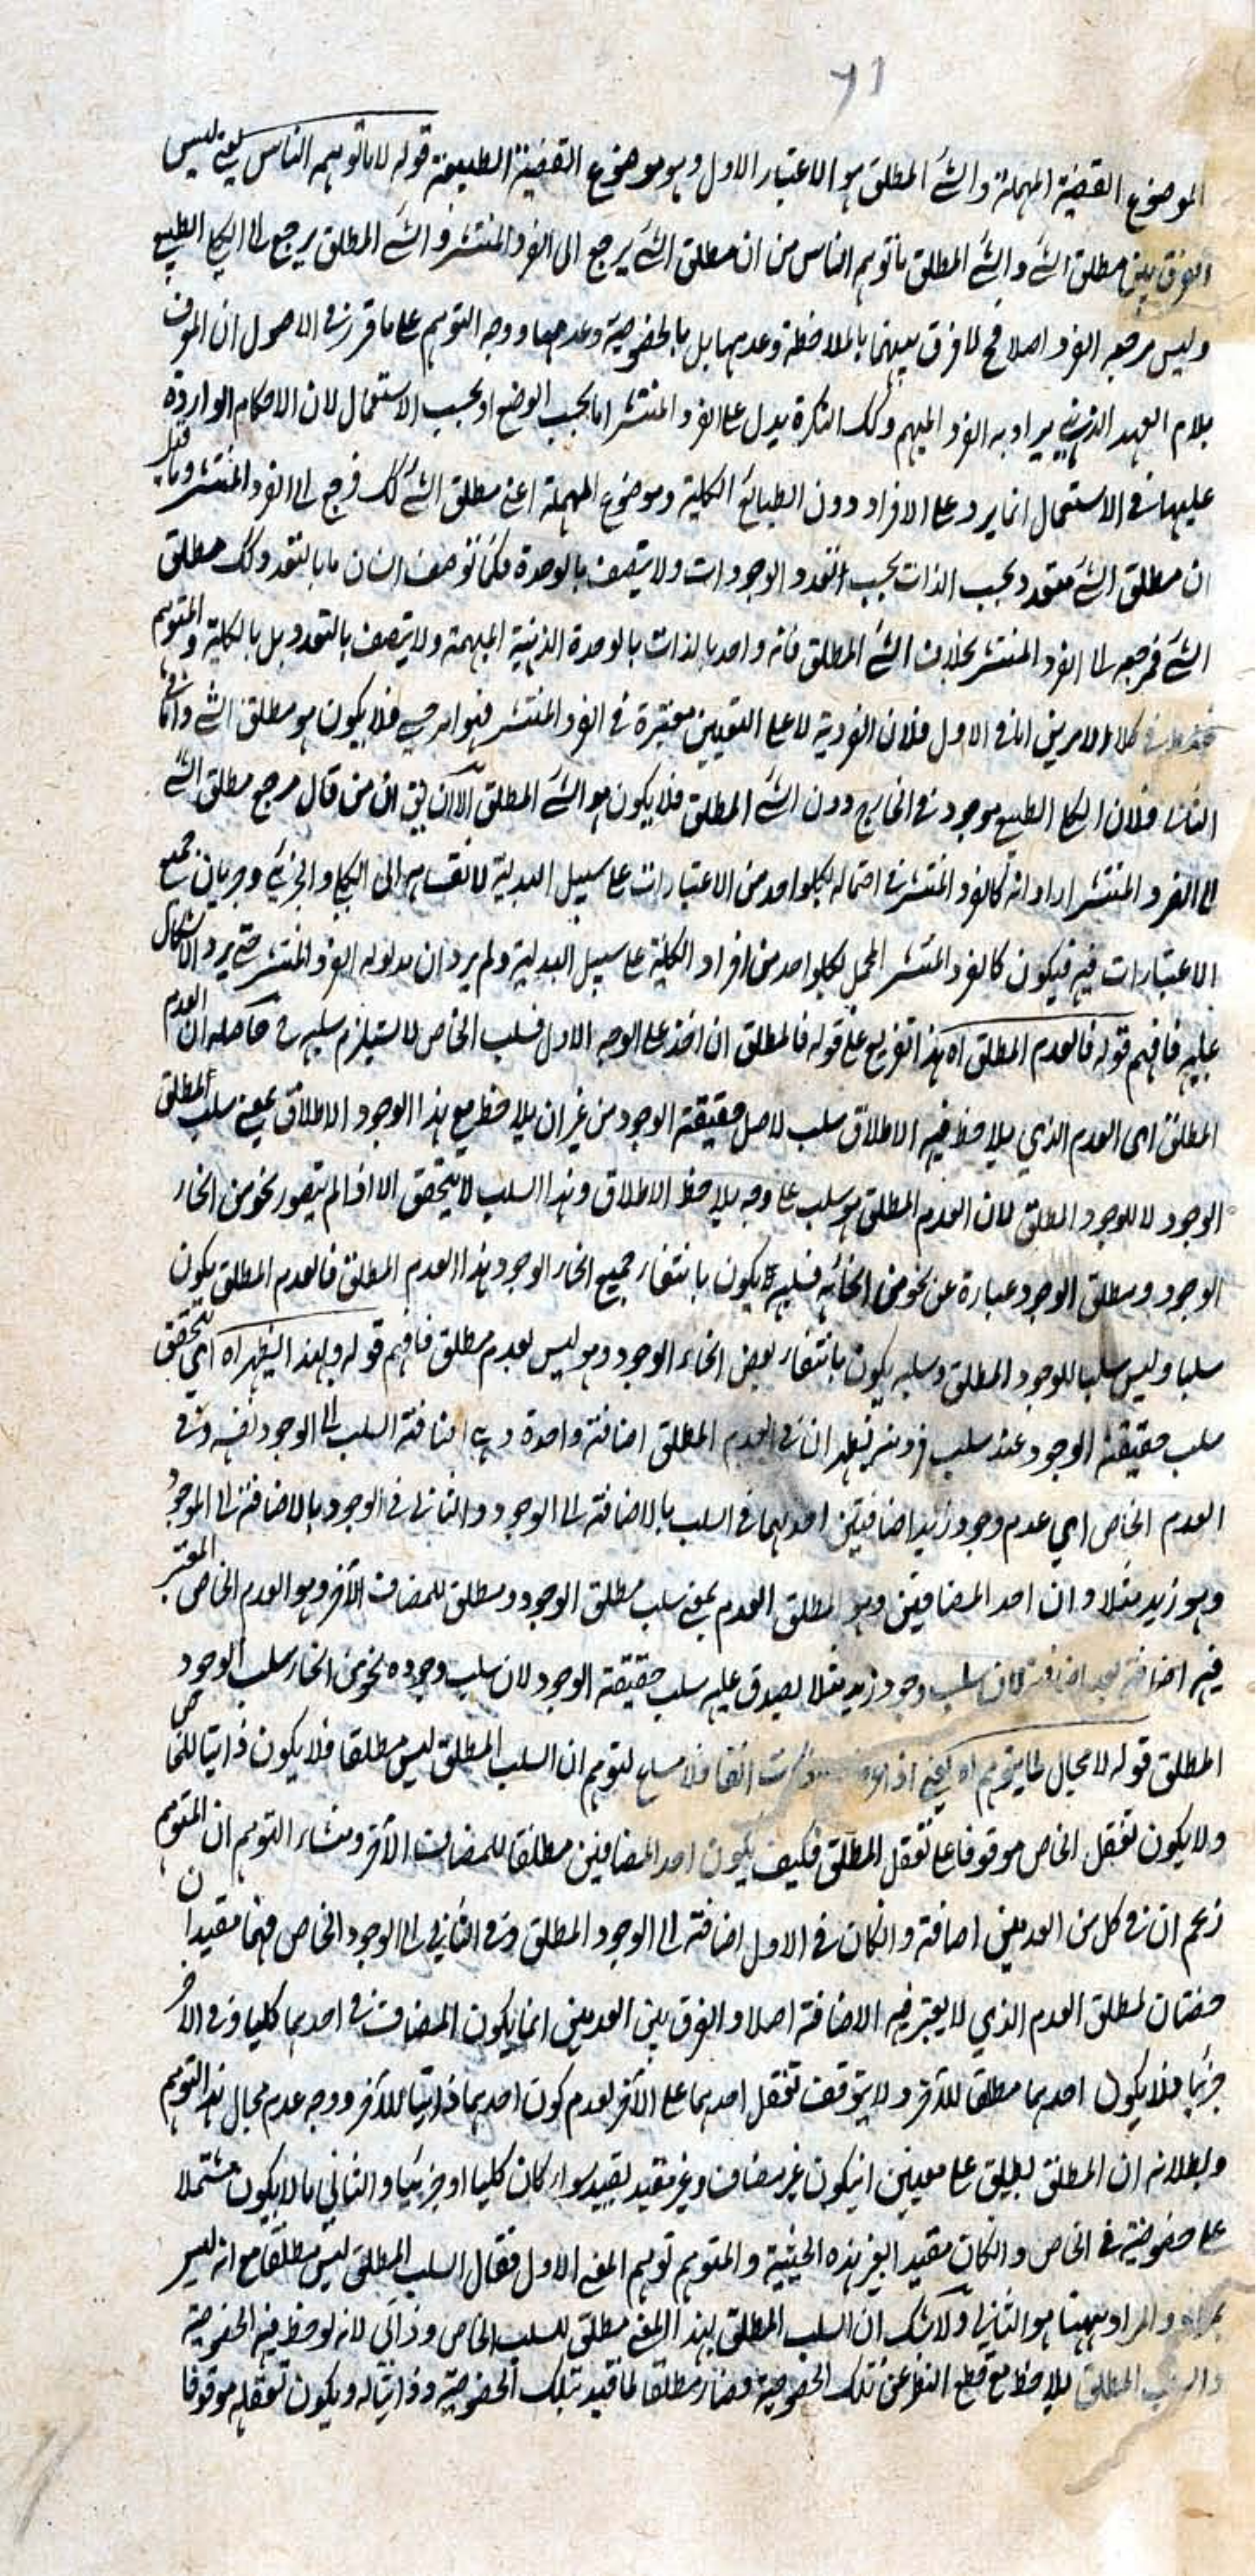 ٦١
الموضوع القضية المهملة والشئ المطلق هو الاعتبار الاول وهو موضوع القضية الطبيعية قوله لا ما توهم الناس يعني ليس
الفرق بين مطلق الشئ والشئ المطلق ما توهم الناس من ان مطلق الشئ يرجع الى الفرد المنتشر والشئ المطلق يرجع الى الكلي الطبيعي
وليس مرجعه الفرد اصلا فح لا فرق بينهما بالملاحظة وعدمها بل بالخصوصية وعدمها ووجه التوهم على ما قرر في الاصول ان المعرف
بلام العهد الذهني يراد به الفرد المبهم وكك النكرة يدل على الفرد المنتشر اما بحسب الوضع او بحسب الاستعمال لان الاحكام الواردة
عليها في الاستعمال انما يرد على الافراد دون الطبائع الكلية وموضوع المهملة اعني مطلق الشئ كك فرجع الى الفرد المنتشر وما قيل
ان مطلق الشئ متعدد بحسب الذات بحسب تعدد الوجودات ولا يتصف بالوحدة فكما توصف انسان ما بالتعدد وكك مطلق
الشئ فمرجعه الى الفرد المنتشر بخلاف الشئ المطلق فانه واحد بالذات بالوحدة الذهنية المبهمة ولا يتصف بالتعدد بل بالكلية والمتوهم
في كلا الامرين اما في الاول فلان الفردية لا على التعيين معتبرة في الفرد المنتشر فهو امر فلا يكون هو مطلق الشئ واما في
الثاني فلان الكلي الطبيعي موجود في الخارج دون الشئ المطلق فلا يكون هو الشئ المطلق الا ان يق ان من قال مرجع مطلق الشئ
الى الفرد المنتشر اراد انه كالفرد المنتشر في احتماله لكل واحد من الاعتبارات على سبيل البدلية لانقسامه الى الكلي والجزئي وجريان جميع
الاعتبارات فيه فيكون كالفرد المنتشر المحمل لكل واحد من افراد الكلية على سبيل البدلية ولم يرد ان مدلوله الفرد المنتشر حتى يرد الاشكال
عليه فافهم قوله فالعدم المطلق اه هذا تفريع على قوله فالمطلق ان اخذ على الوجه الاول فسلب الخاص لا يستلزم سلبه حاصله ان العدم
المطلق اى العدم الذي يلاحظ فيه الاطلاق سلب لاصل حقيقة الوجود من غير ان يلاحظ مع هذا الوجود الاطلاق بمعنى سلب المطلق
الوجود لا للوجود المطلق لان العدم المطلق هو سلب على وجه يلاحظ الاطلاق وهذا السلب لا يتحقق الا اذا لم يتصور نحو من انحاء
الوجود ومطلق الوجود عبارة عن نحو من انحائه فسلبه يكون بانتفاء جميع انحاء الوجود هذا العدم المطلق فالعدم المطلق يكون
سلبا وليس سلبا للوجود المطلق وسلبه يكون بانتفاء بعض انحاء الوجود وهو ليس بعدم مطلق فافهم قوله وبهذا يظهر اه اي يتحقق
سلب حقيقة الوجود عند سلب فرد منه يظهر ان في العدم المطلق اضافة واحدة وهي اضافة السلب الى الوجود نفسه وفي
العدم الخاص اي عدم وجود زيد اضافيتين احدهما في السلب بالاضافة الى الوجود والثاني في الوجود بالاضافة الى الموجود
وهو زيد مثلا وان احد المضافين وهو المطلق العدم بمعنى سلب مطلق الوجود ومطلق للمضاف الآخر وهو العدم الخاص المعتبر
فيه اضافة بعد اضافة لان سلب وجود زيد مثلا يصدق عليه سلب حقيقة الوجود لان سلب وجوده نحو من انحاء سلب الوجود
المطلق قوله لا مجال لما يتوهم اه يعني اذا ذكرت انفا فلا مساغ لتوهم ان السلب المطلق ليس مطلقا فلا يكون ذاتيا للخاص
ولا يكون تعقل الخاص موقوفا على تعقل المطلق فكيف يكون احد المضافين مطلقا للمضاف الآخر ومنشاء التوهم ان المتوهم
زعم ان في كل من العدمين اضافة وان كان في الاول اضافة الى الوجود المطلق وفي الثاني الى الوجود الخاص فهما مقيدان
حصتان لمطلق العدم الذي لا يعتبر فيه الاضافة اصلا والفرق بين العدمين انما يكون المضاف في احدهما كليا وفي الآخر
جزئيا فلا يكون احدهما مطلقا للآخر ولا يتوقف تعقل احدهما على الآخر لعدم كون احدهما ذاتيا للآخر ووجه عدم مجال هذا التوهم
وبطلانه ان المطلق يطلق على معنيين ان يكون غير مضاف وغير مقيد بقيد سواء كان كليا او جزئيا والثاني ما لا يكون مشتملا
على خصوصية في الخاص وان كان مقيدا بغير هذه الحيثية والمتوهم توهم المعنى الاول فقال السلب المطلق ليس مطلقا مع انه ليس
بمراد والمراد ههنا هو الثاني ولا شك ان السلب المطلق بهذا المعنى مطلق للسلب الخاص وذاتي لانه لوحظ فيه الخصوصية
والسلب المطلق يلاحظ مع قطع النظر عن تلك الخصوصية فصار مطلقا لما قيد بتلك الخصوصية وذاتيا له ويكون تعقله موقوفا